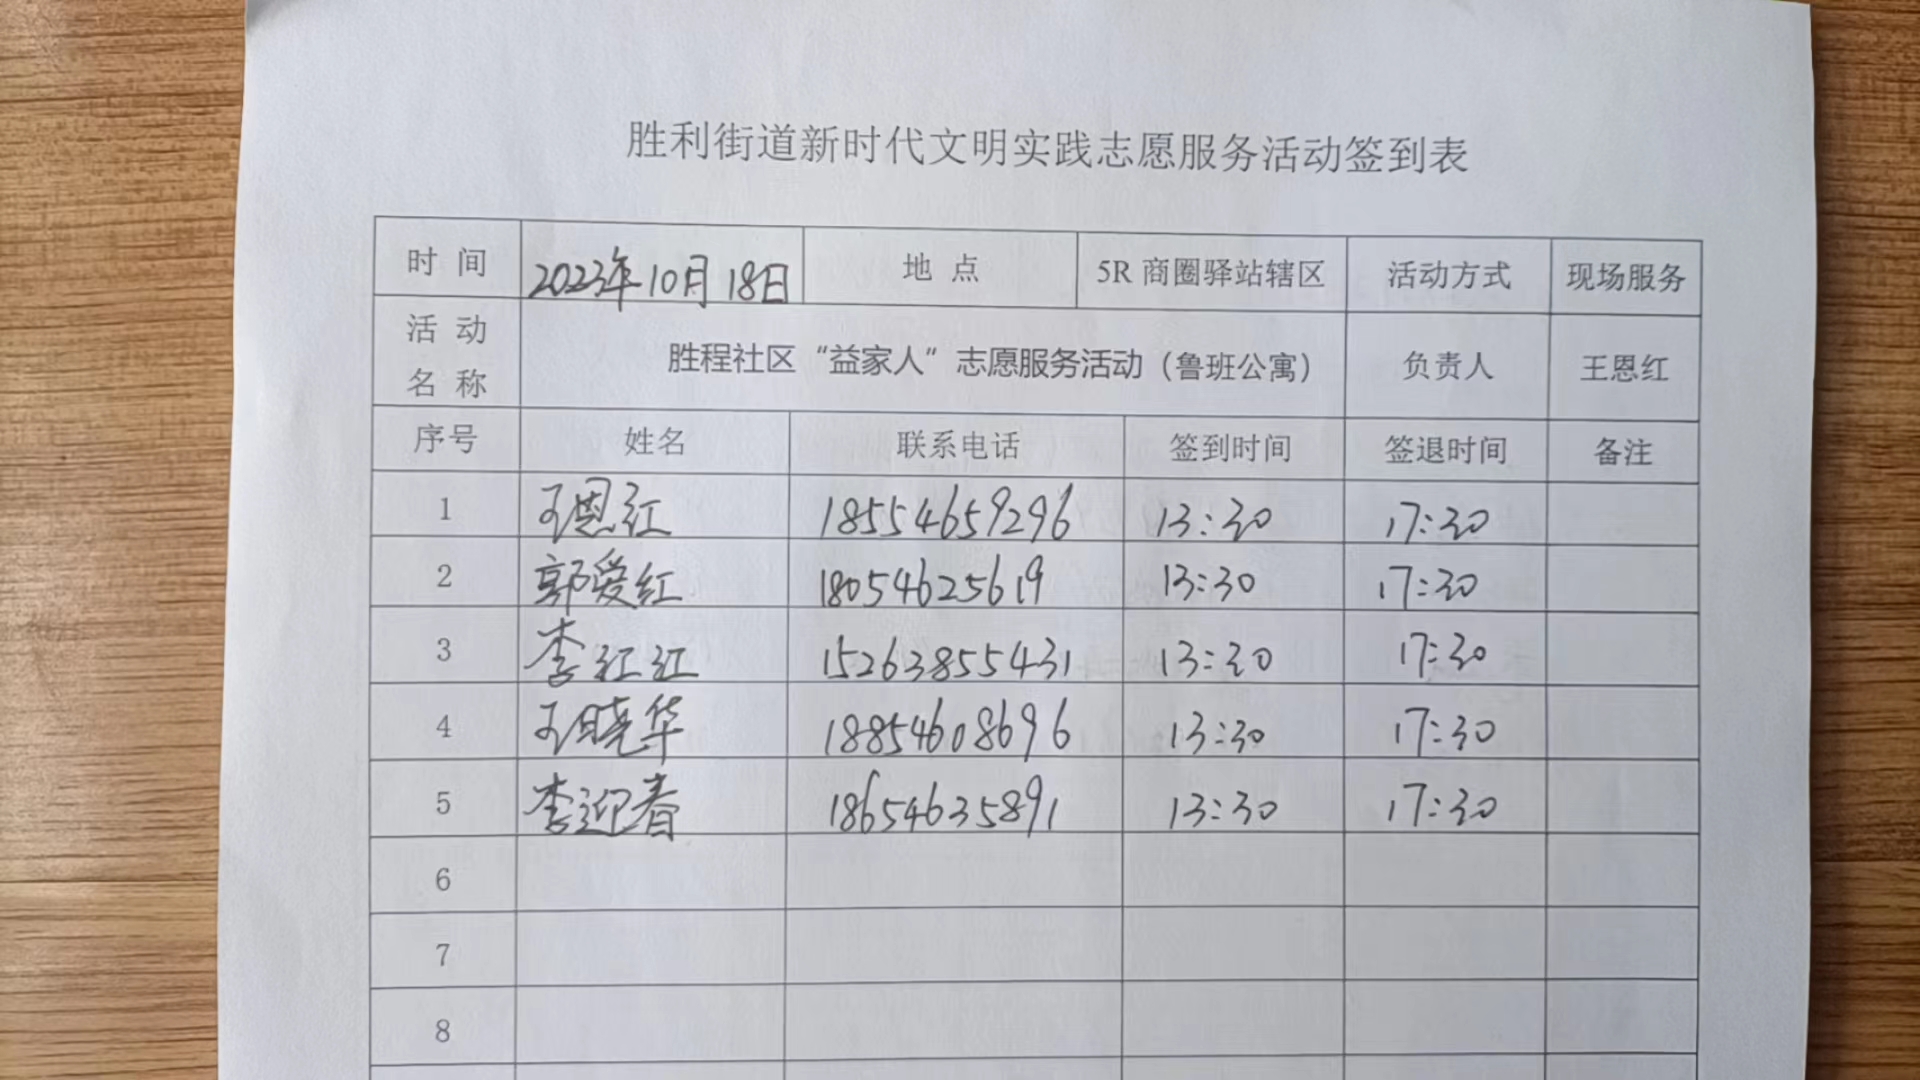 胜利街道新时代文明实践志愿服务活动签到表
时 间 2023年10月18日 地 点 5R 商圈驿站辖区 活动方式 现场服务
活 动
名 称 胜程社区“益家人”志愿服务活动（鲁班公寓） 负责人 王恩红
序号 姓名 联系电话 签到时间 签退时间 备注
1 王恩红 18554659296 13:30 17:30
2 郭爱红 18054625619 13:30 17:30
3 李红红 15263855431 13:30 17:30
4 王晓华 18854608696 13:30 17:30
5 李迎春 18654635891 13:30 17:30
6
7
8